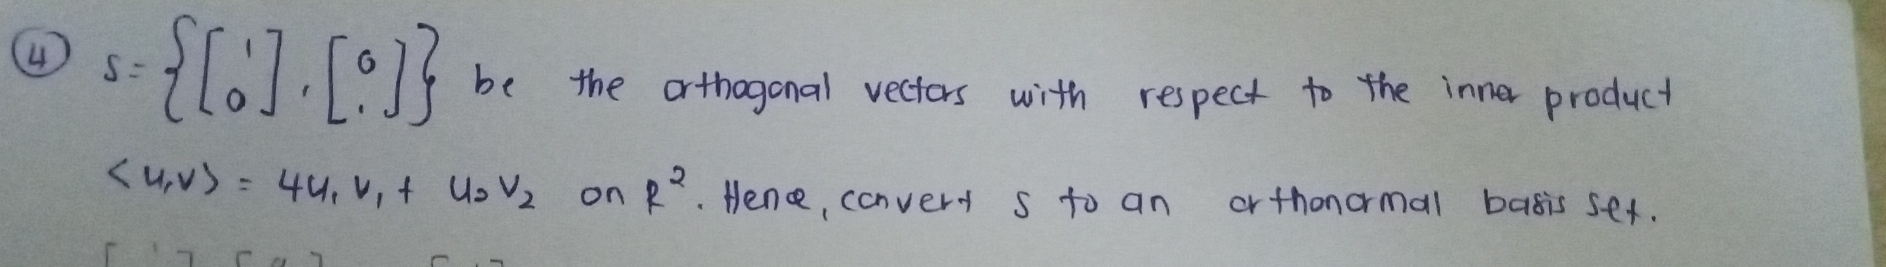 ④ S = {[1 0], [0 1]} be the orthogonal vectors with respect to the inner product
<u,v> = 4u₁v₁ + u₂v₂ on R². Hence, convert S to an orthonormal basis set.